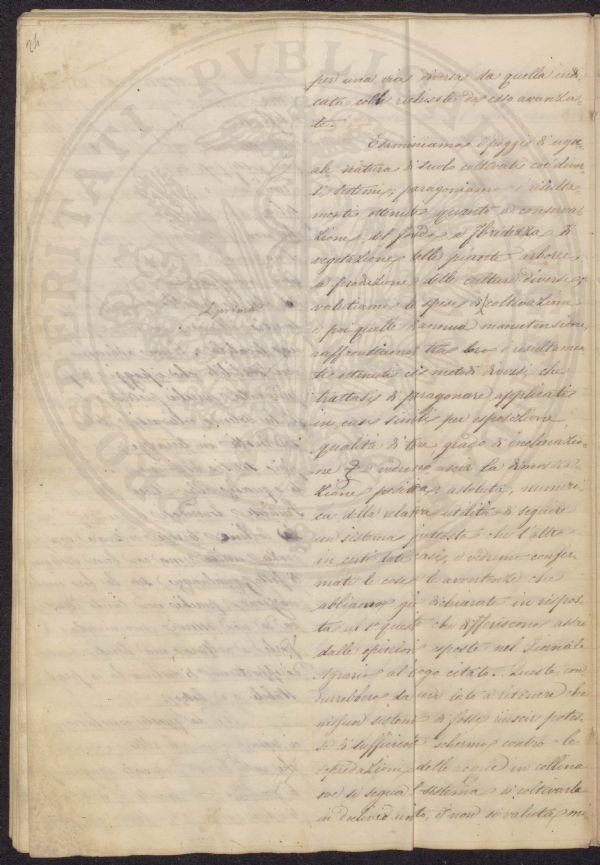 24
PROSPERITATI PUBLICAE
per una via diversa da quella indi
cata colle richieste da esso avanza
te.
Esaminiamo i poggi di ugua
le natura di suolo coltivati coi diver
si sistemi; paragoniamo i
menti ottenuti quanto a conserva
zione del fondo e floridezza di
vegetazione delle piante arboree
a produzione delle culture diverse,
valutiamo le spese di coltivazione
e poi quelle d'annua manutenzione
raffrontiamo tra loro i resultamen
ti ottenuti coi metodi diversi che
trattasi di paragonare applicati
in casi simili per esposizione,
qualità di terre grado di inclinazio
ne e vedremo uscir la dimostra
zione positiva, assoluta, numeri
ca della relativa utilità di seguire
un sistema piuttosto che l'altro
in certi dati casi, e vedremo confer
mate le cose e avvertenze che
abbiamo qui dichiarate in rispos
ta ai quesiti che differiscono assai
dalle opinioni esposte nel Giornale
Agrario al luogo citato. Queste con
durrebbero da un lato a ritenere che
nissun sistema di fosse riuscir potes
se di sufficiente schermo contro le
depredazioni delle acque in collina
ove si segua il sistema di coltivarla
in declivio unito, e non si valuta